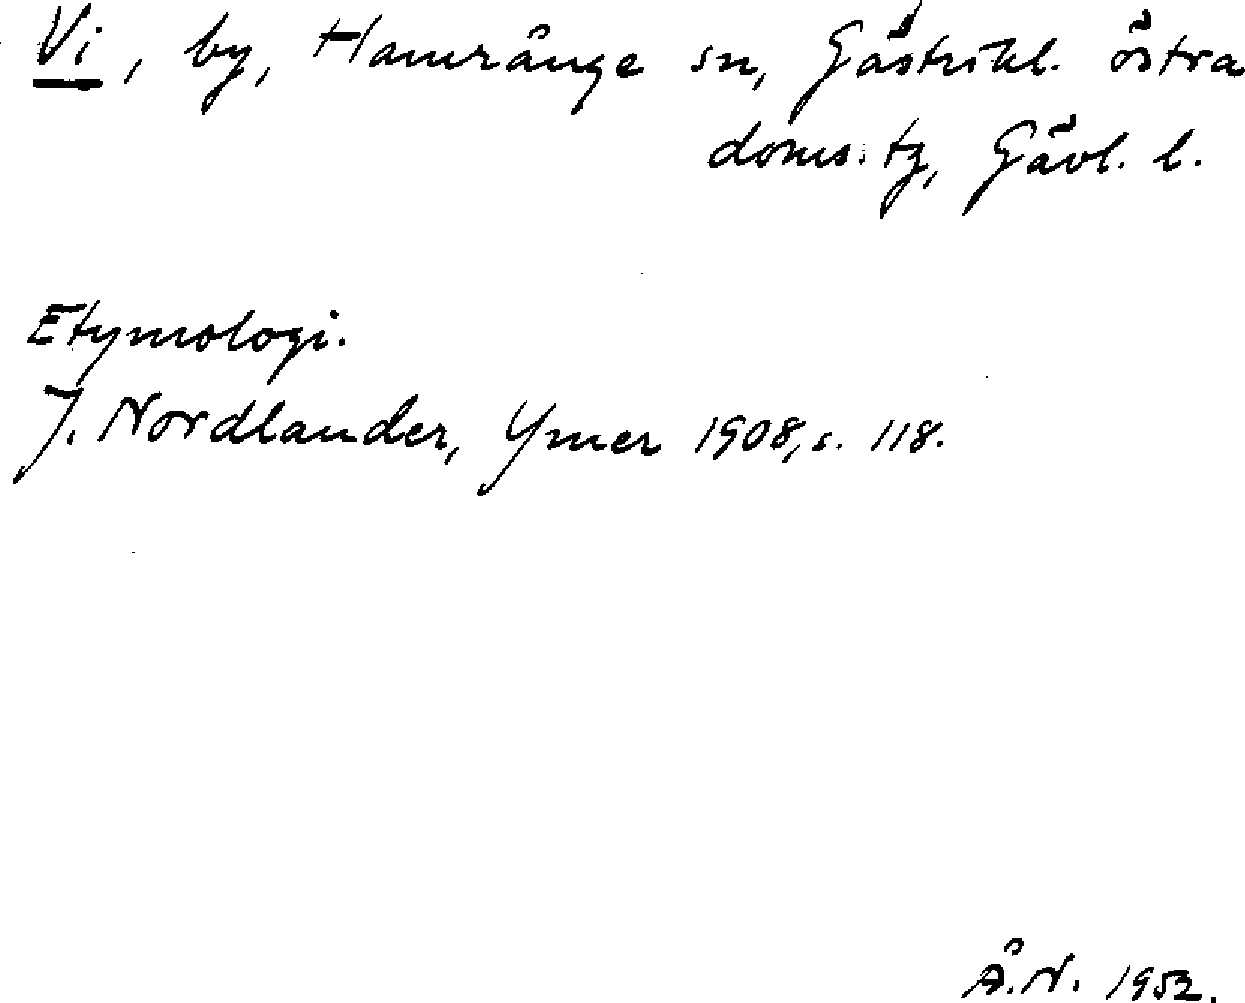 Vi, by, Hamrånge sn, Gästrikl. östra
doms. tg, Gävl. l.
Etymologi.
J. Nordlander, Ymer 1908, s. 118.
Å.N. 1952.